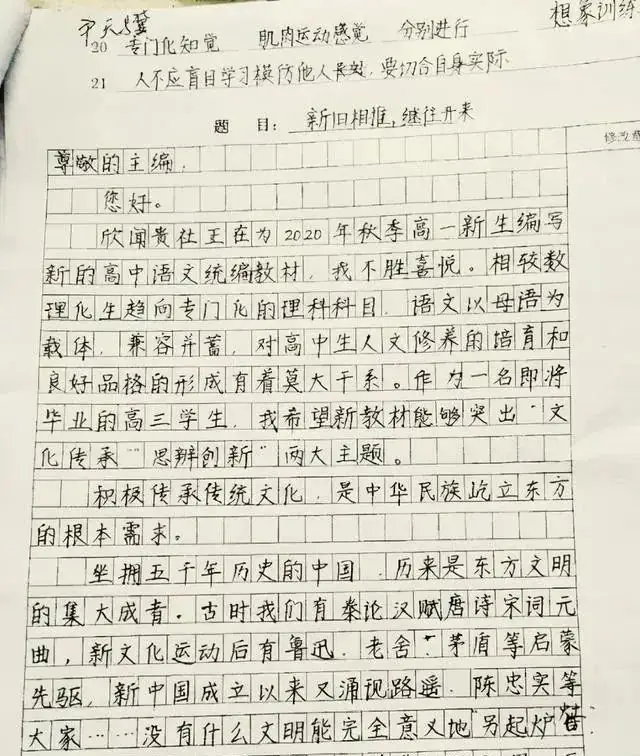 20 专门化知觉 肌肉运动感觉 分别进行
想象训练
21 人不应盲目学习模仿他人长处，要切合自身实际
题 目： 新旧相推，继往开来
修改
尊敬的主编，
您好。
欣闻贵社正在为2020年秋季高一新生编写
新的高中语文统编教材，我不胜喜悦。相较数
理化生趋向专门化的理科科目，语文以母语为
载体，兼容并蓄，对高中生人文修养的培育和
良好品格的形成有着莫大干系。作为一名即将
毕业的高三学生，我希望新教材能够突出“文
化传承”“思辨创新”两大主题。
积极传承传统文化，是中华民族屹立东方
的根本需求。
坐拥五千年历史的中国，历来是东方文明
的集大成者。古时我们有秦论汉赋唐诗宋词元
曲，新文化运动后有鲁迅、老舍、茅盾等启蒙
先驱，新中国成立以来又涌现路遥、陈忠实等
大家……没有什么文明能完全意义地“另起炉灶